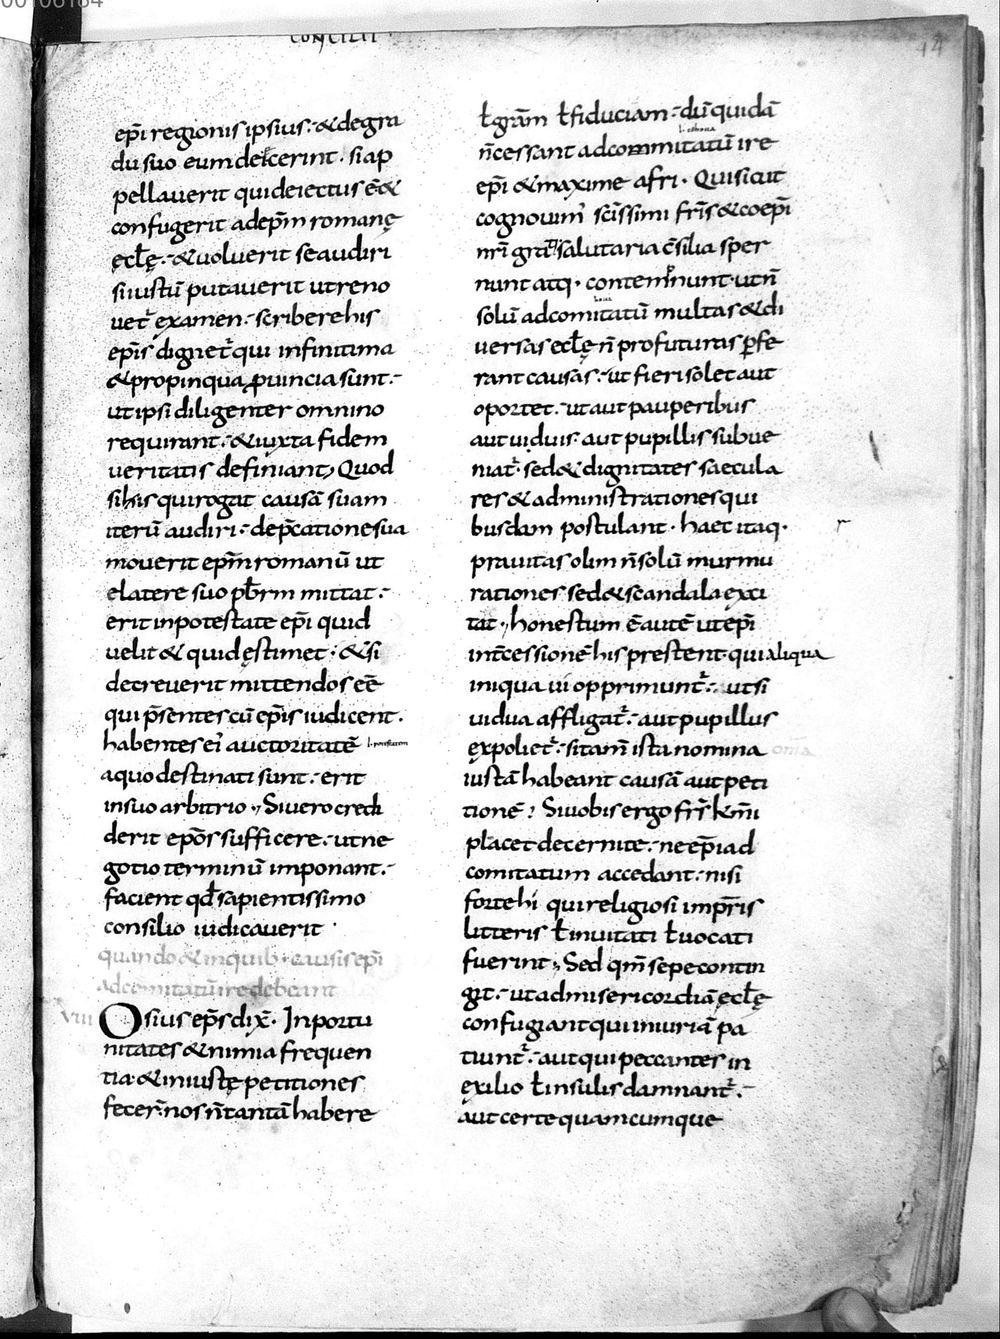 00106184
CONCILII
14
ep̄i regionis ipsius · & degra
du suo eum deiecerint · si ap
pellauerit qui deiectus ē &
confugerit ad ep̄m romanę
ęcl̄ę · & uoluerit se audiri
si iustū putauerit ut reno
uet᷑ examen · scribere his
ep̄is dignet᷑ qui infinitima
& propinqua ꝓuincia sunt ·
ut ipsi diligenter omnino
requirant · & iuxta fidem
ueritatis definiant, Quod
si his qui rogat causā suam
iterū audiri · dep̄catione sua
mouerit ep̄m romanū ut
elatere suo pb̄rm mittat ·
erit in potestate ep̄i quid
uelit & quid ęstimet · & si
decreuerit mittendos eē
qui p̄sentes cū ep̄is iudicent ·
habentes ei᷒ auctoritatē
a quo destinati sunt · erit
in suo arbitrio ·, Si uero credi
derit ep̄os sufficere · ut ne
gotio terminū imponant ·
facient qd̄ sapientissimo
consilio iudicauerit ·
quando & in quib · causis ep̄i
ad comitatū ire debeant
VIII Osius ep̄s dix̄ · Inportu
nitates & nimia frequen
tia · & iniustę petitiones
fecer̄ · nos n̄ tantā habere
ł grām ł fiduciam · dū quidā
n̄ cessant ad commitatū ire
ep̄i & maxime afri · Qui sicut
cognouim᷒ sc̄issimi fr̄is & coep̄i
nr̄i grati salutaria c̄silia sper
nunt atq · contemnunt · ut n̄
solū ad comitatū multas & di
uersas ecl̄ę n̄ profuturas ꝑfe
rant causas · ut fieri solet aut
oportet · ut aut pauperibus
aut uiduis · aut pupillis subue
niat᷑ · sed & dignitates saecula
res & administrationes qui
busdam postulant · haec itaq ·
prauitas olim n̄ solū murmu
rationes sed & scandala exci
tat ·, honestum ē autē ut ep̄i
int̄cessionē his prestent · qui aliqua
iniqua ui opprimunt᷑ · ut si
uidua affligat᷑ · aut pupillus
expoliet᷑ · si tam̄ ista nomina
iustā habeant causā aut peti
tionē ? Si uobis ergo fr̄s k̄mi
placet decernite · ne ep̄i ad
comitatum accedant · nisi
forte hi qui religiosi imp̄ris
litteris ł inuitati ł uocati
fuerint ·, Sed qm̄ sepe contin
git · ut ad misericordiā ęcl̄ę
confugiant qui iniuriā pa
tiunt᷑ · aut qui peccantes in
exilio ł insulis damnant᷑ ·
aut certe quamcumque